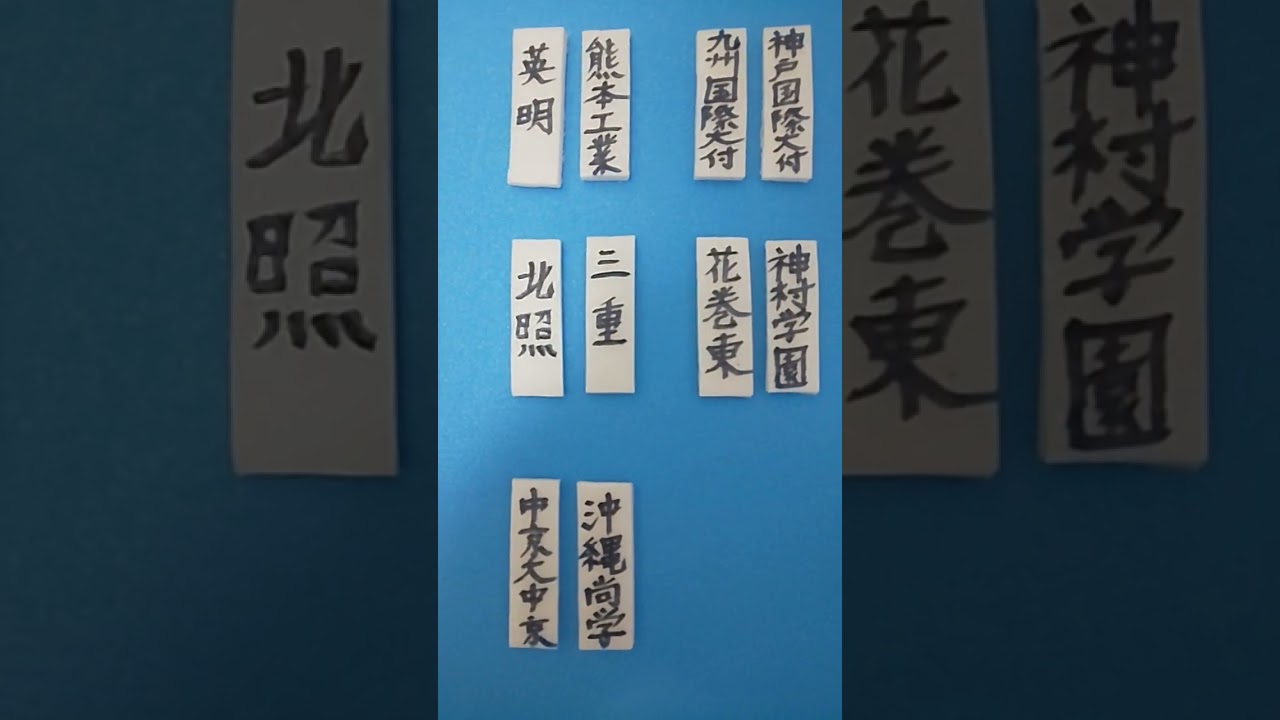 北照
英明
熊本工業
九州国際大付
神戸国際大付
北照
三重
花巻東
神村学園
中京大中京
沖縄尚学
花巻東
神村学園